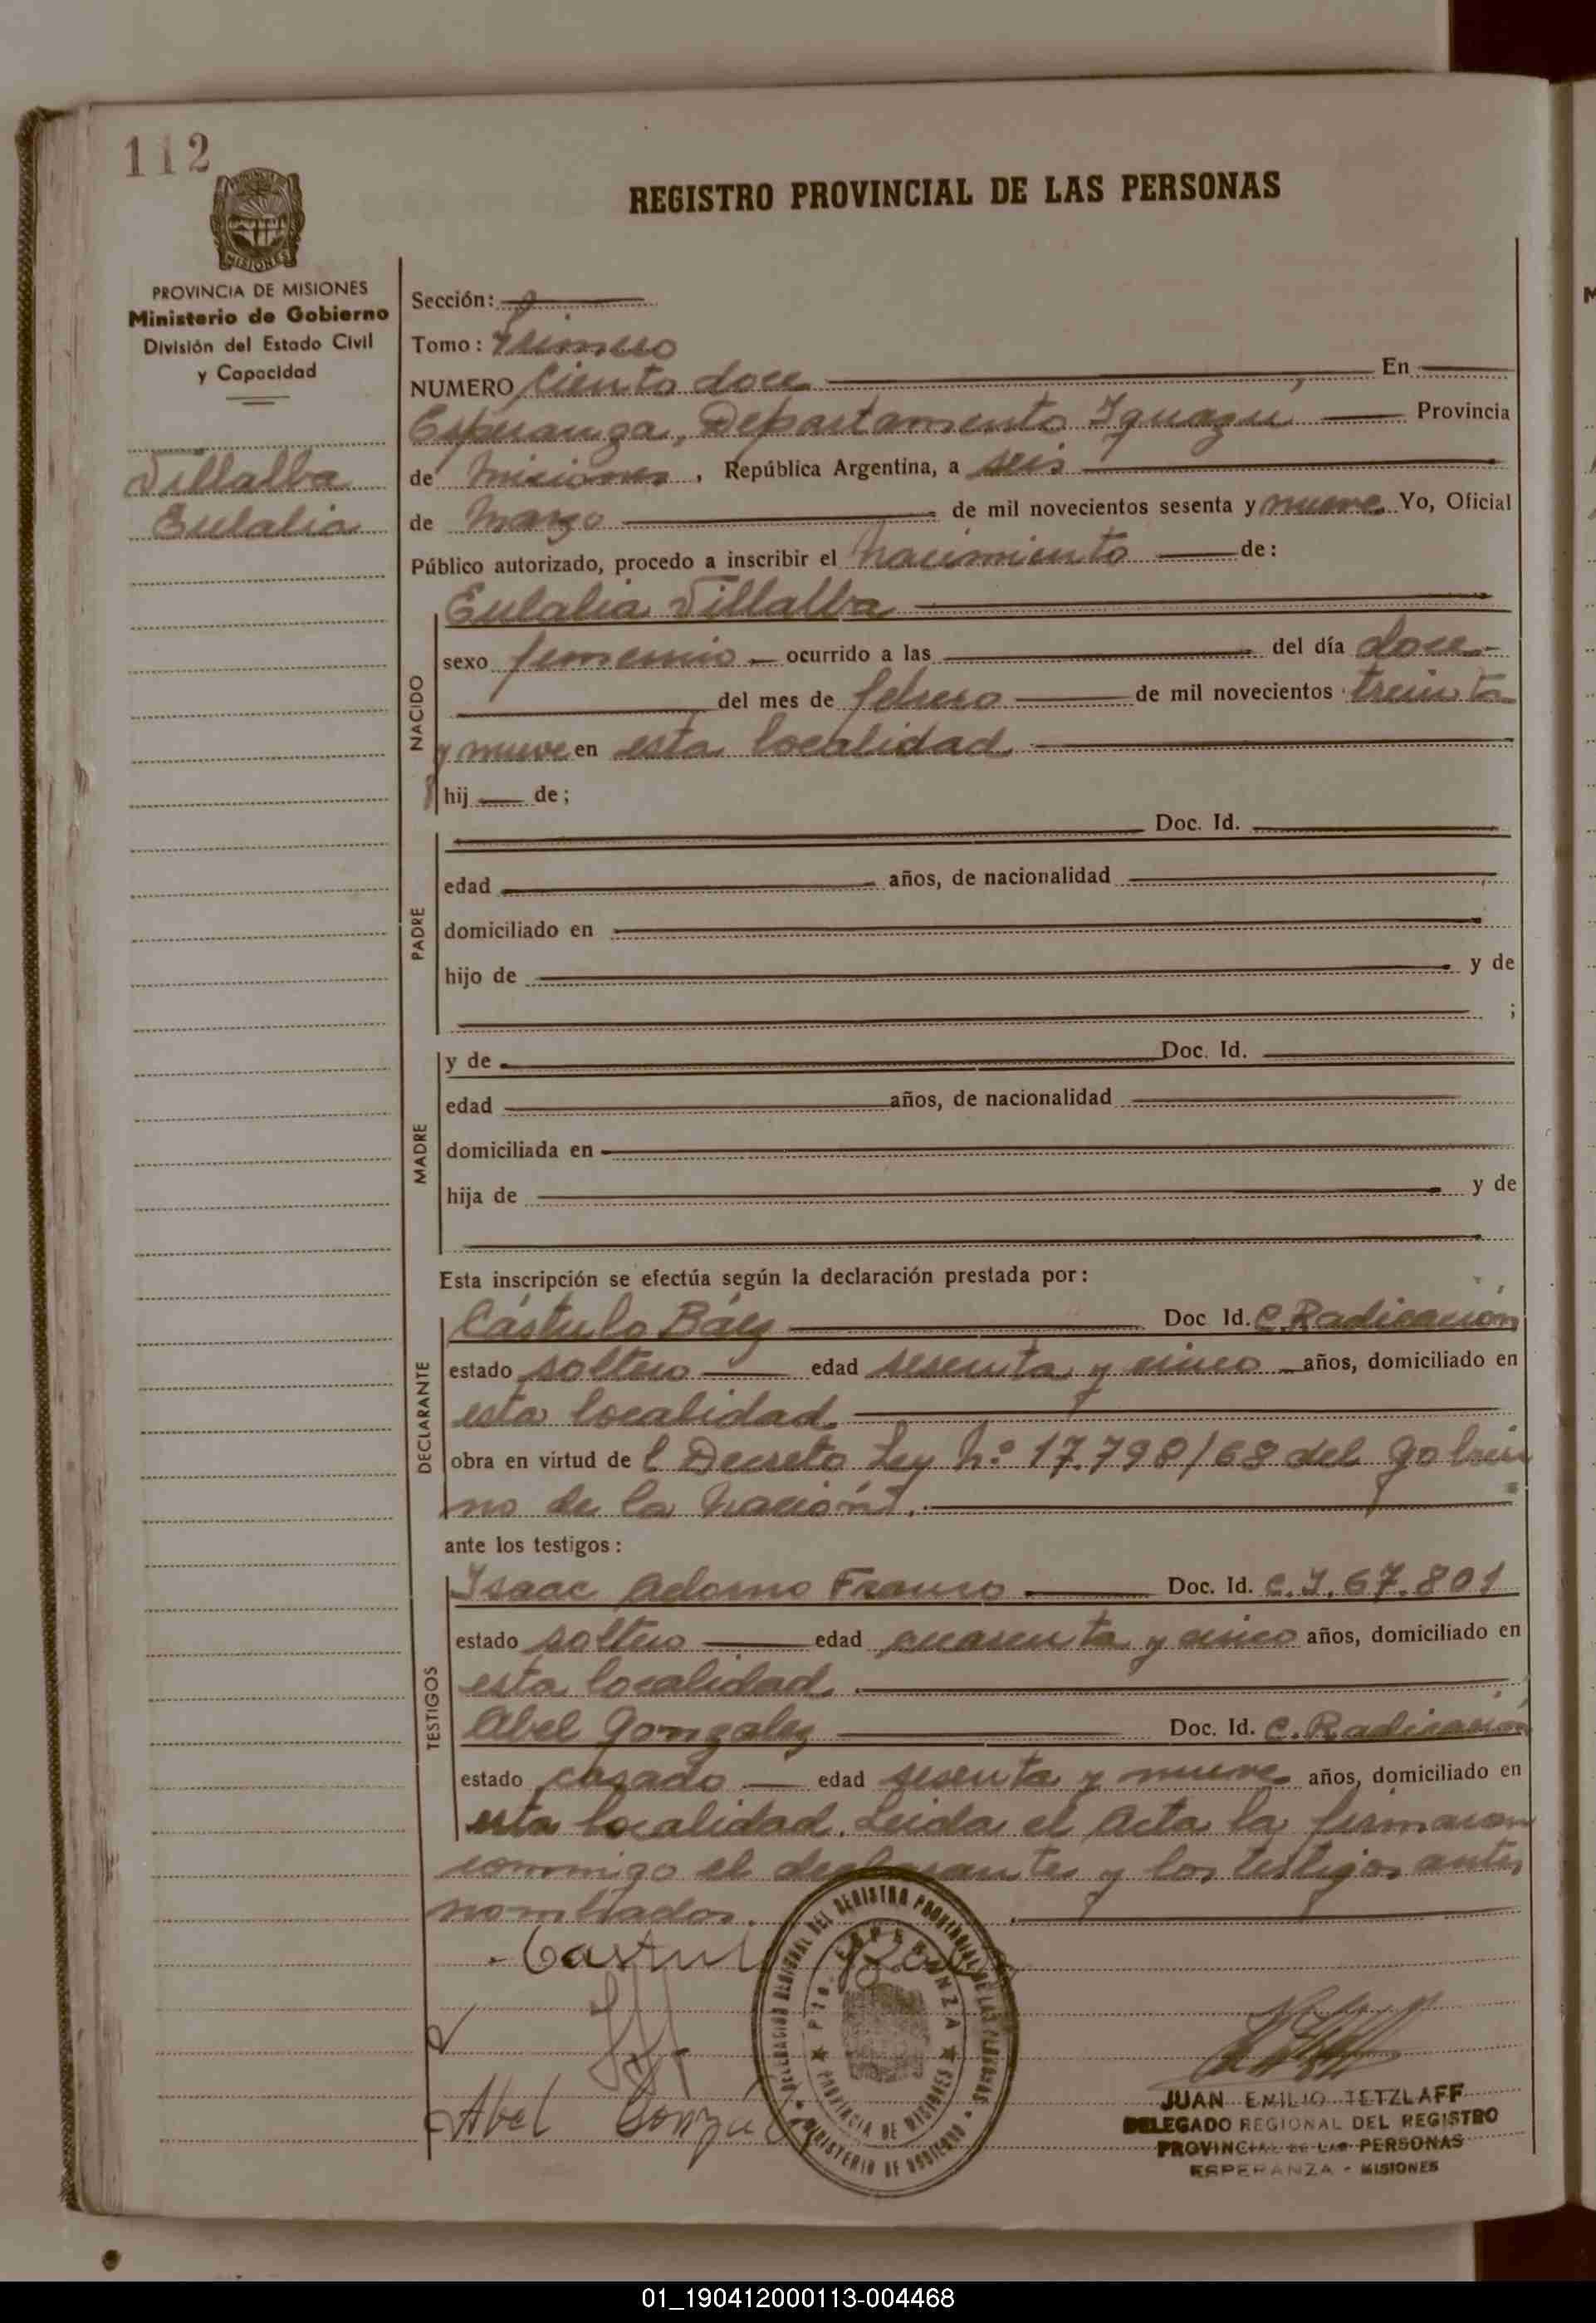 112
REGISTRO PROVINCIAL DE LAS PERSONAS
PROVINCIA DE MISIONES
Ministerio de Gobierno
División del Estado Civil
y Capacidad
Villalba
Eulalia
Sección:
Tomo: Primero
NUMERO Ciento doce En
Esperanza, Departamento Iguazu, Provincia
de Misiones, República Argentina, a seis
de Marzo de mil novecientos sesenta y nueve Yo, Oficial
Público autorizado, procedo a inscribir el nacimiento de:
NACIDO
Eulalia Villalba
sexo femenino ocurrido a las del día doce
del mes de febrero de mil novecientos treinta
y nueve en esta localidad.
hij de;
PADRE
Doc. Id.
edad años, de nacionalidad
domiciliado en
hijo de y de
;
MADRE
y de Doc. Id.
edad años, de nacionalidad
domiciliada en
hija de y de
Esta inscripción se efectúa según la declaración prestada por:
DECLARANTE
Cástulo Báez Doc Id. C. Radicación
estado soltero edad sesenta y cinco años, domiciliado en
esta localidad.
obra en virtud de l Decreto Ley Nº 17.798/68 del gobier
no de la Nación.
ante los testigos:
TESTIGOS
Isaac Adorno Franco Doc. Id. C.I. 67.801
estado soltero edad cuarenta y cinco años, domiciliado en
esta localidad.
Abel Gonzalez Doc. Id. C. Radicación
estado casado edad sesenta y nueve años, domiciliado en
esta localidad. Leida el Acta la firmaron
conmigo el declarante y los testigos antes
nombrados.
DELEGACION REGIONAL DEL REGISTRO PROVINCIAL DE LAS PERSONAS
Pto. ESPERANZA
PROVINCIA DE MISIONES
MINISTERIO DE GOBIERNO
Abel Gonzalez
JUAN EMILIO TETZLAFF
DELEGADO REGIONAL DEL REGISTRO
PROVINCIAL DE LAS PERSONAS
ESPERANZA - MISIONES
01_190412000113-004468